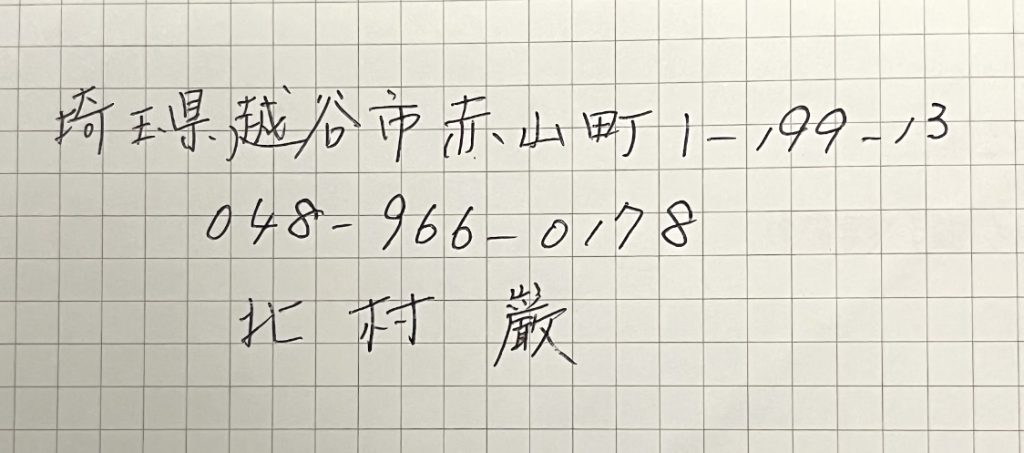 埼玉県越谷市赤山町1-199-13
048-966-0178
北村 巌